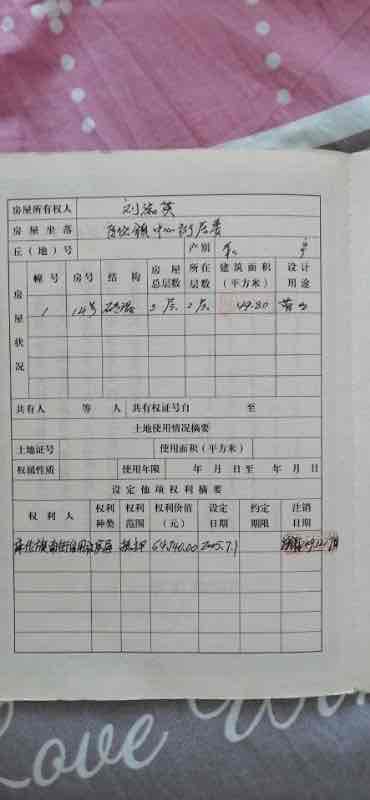 房屋所有权人 刘 英
房屋坐落 镇中心街居委
丘(地)号 产别
房屋状况
幢号 房号 结构 房屋总层数 所在层数 建筑面积(平方米) 设计用途
1 14号 砖混 层 2层 49.80
共有人 等 人 共有权证号自 至
土地使用情况摘要
土地证号 使用面积(平方米)
权属性质 使用年限 年 月 日至 年 月 日
设定他项权利摘要
权利人 权利种类 权利范围 权利价值(元) 设定日期 约定期限 注销日期
抵押 64740.00 2005.7.1
Love